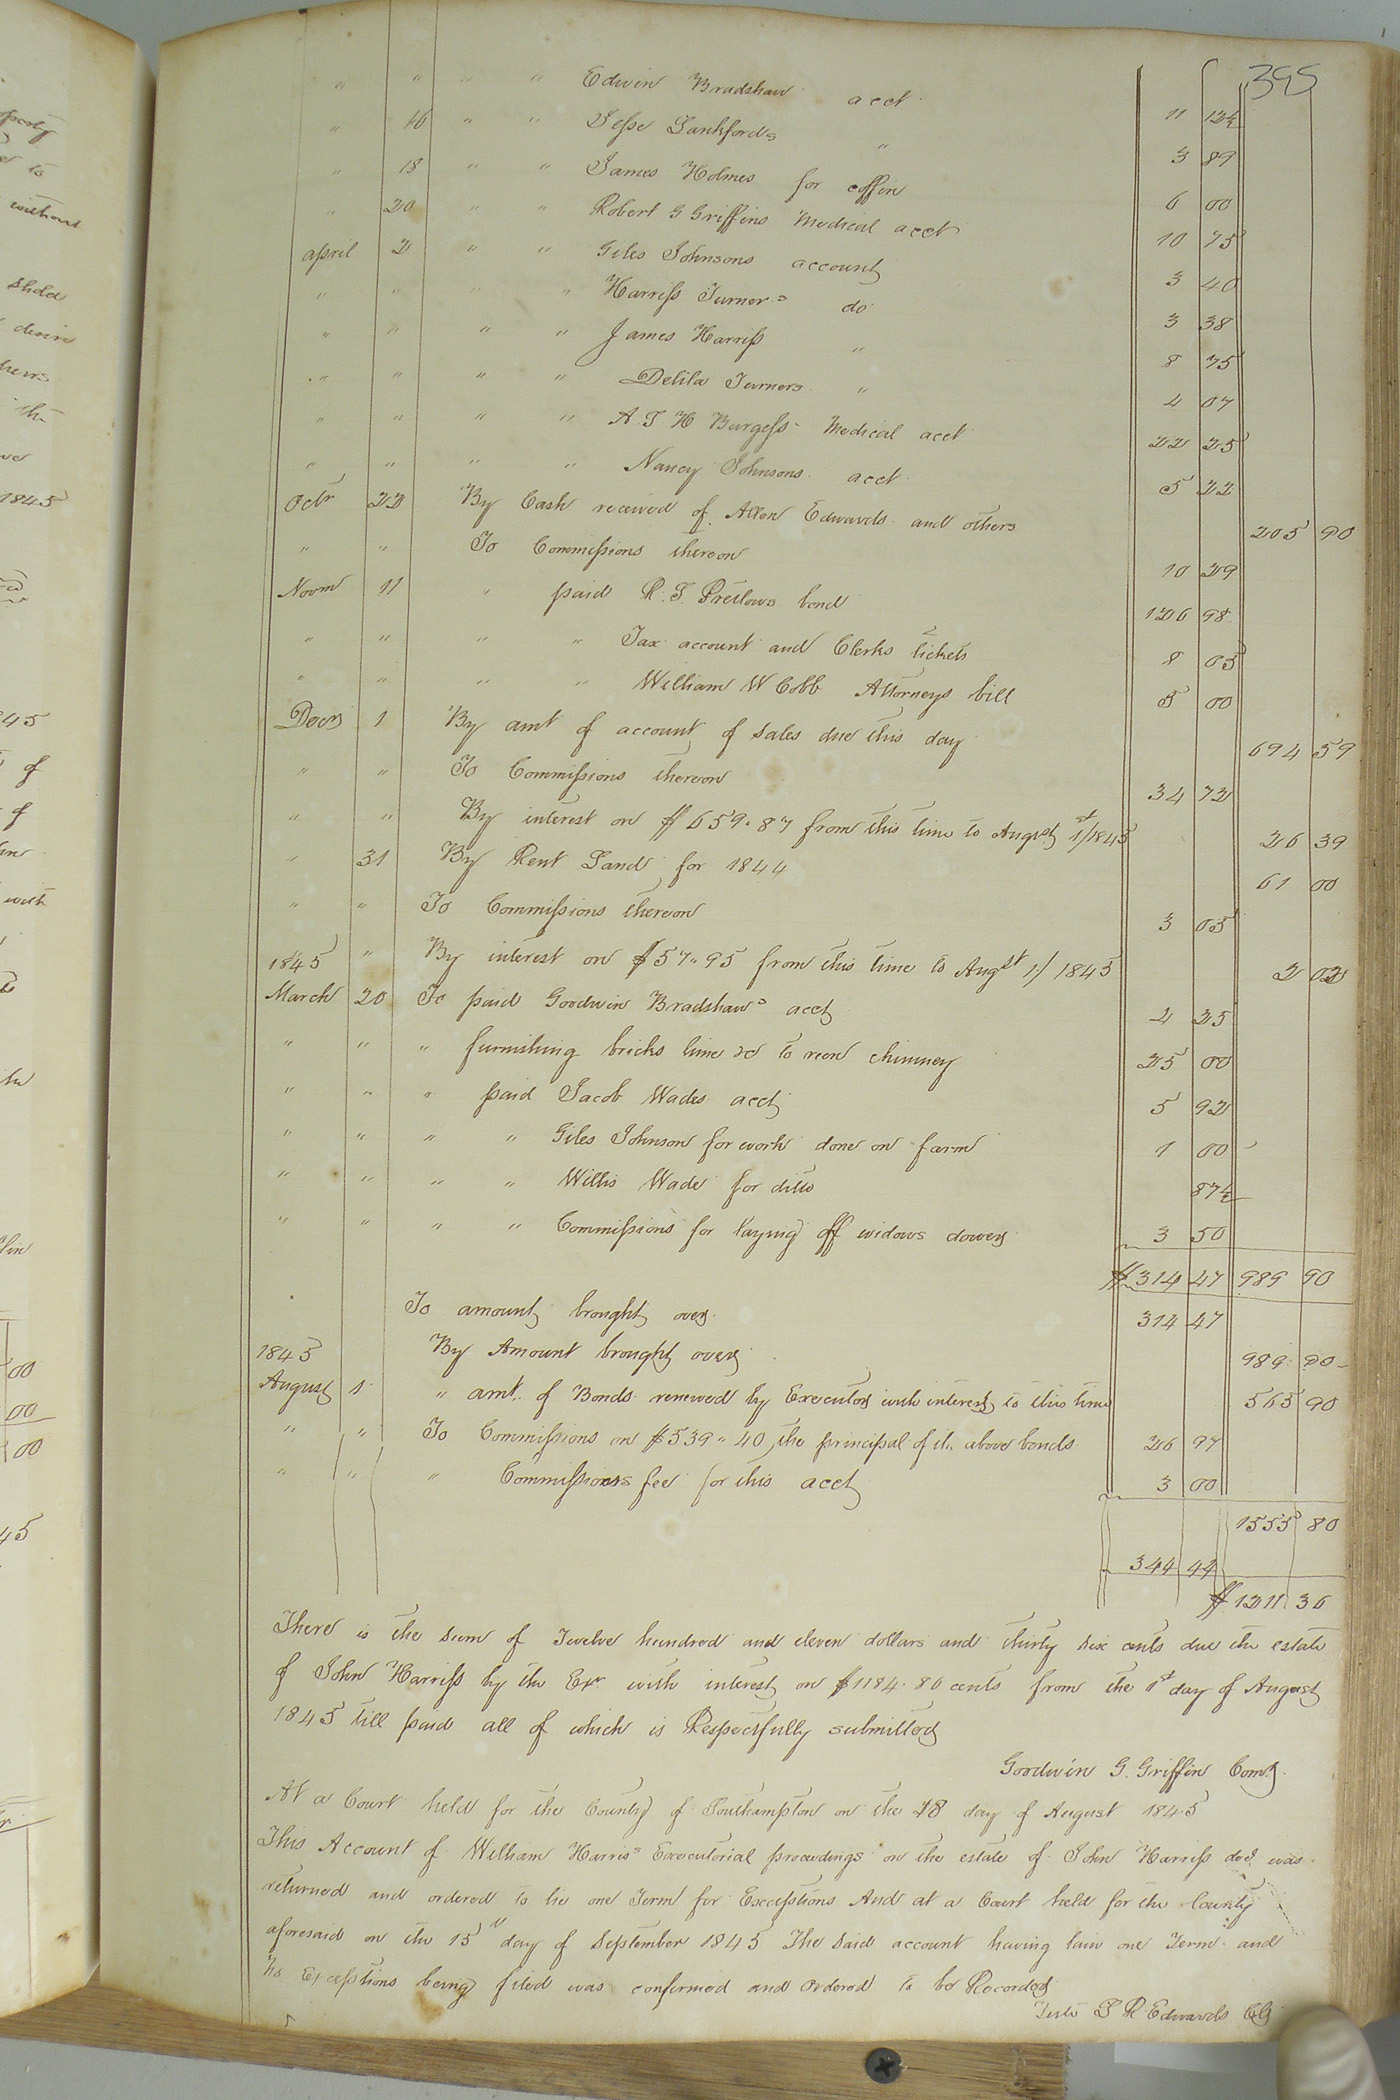 395
" " " " Edwin Bradshaw acct 11 12½
" 16 " " Jesse Lankfords " 3 89
" 18 " " James Holmes for coffin 6 00
" 20 " " Robert G Griffins Medical acct 10 75
April 2 " " Giles Johnsons account 3 40
" " " Harriss Turners do 3 38
" " " " James Harriss " 8 75
" " " " Delila Turners " 4 07
" " " " A. T H Burgess Medical acct 22 25
" " " " Nancy Johnsons acct 5 22
Octr 22 By Cash received of Allen Edwards and others 205 90
" " To Commissions thereon 10 29
Novm 11 " paid R. J. Pretlows bond 126 98
" " " " Tax account and Clerks tickets 8 05
" " " " William W Cobb Attorneys bill 5 00
Decr 1 By amt of account of sales due this day 694 59
" " To Commissions thereon 34 72
" " By interest on $659.87 from this time to Augst 1st/1845 26 39
" 31 By Rent Land for 1844 61 00
" " To Commissions thereon 3 05
1845 " By interest on $57.95 from this time to Augst 1/ 1845 2 02
March 20 To paid Goodwin Bradshaws acct 4 25
" " " furnishing bricks lime &c to chimney 25 00
" " " paid Jacob Wades acct 5 92
" " " " Giles Johnson for work done on farm 1 00
" " " " Willis Wade for ditto 87½
" " " " Commissions for laying off widows dower 3 50
$314 47 989 90
To amount brought over 314 47
1845 By Amount brought over 989 90
August 1 " amt. of Bonds renewed by Executor with interest to this time 565 90
" " To Commissions on $539.40, the principal of the above bonds 26 97
" " " Commissioners fee for this acct 3 00
1555 80
344 44
$1211 36
There is the sum of Twelve hundred and eleven dollars and thirty six cents due the estate
of John Harriss by the Exr with interest on $1184.86 cents from the 1st day of August
1845 till paid all of which is Respectfully submitted
Goodwin G. Griffin Comr
At a Court held for the County of Southampton on the 18 day of August 1845
This Account of William Harris's Executorial proceedings on the estate of John Harriss decd. was
returned and ordered to lie one Term for Exceptions And at a Court held for the County
aforesaid on the 15th day of September 1845 The said account having lain one Term and
No Exceptions being filed was confirmed and Ordered to be Recorded
Teste L R Edwards Clk